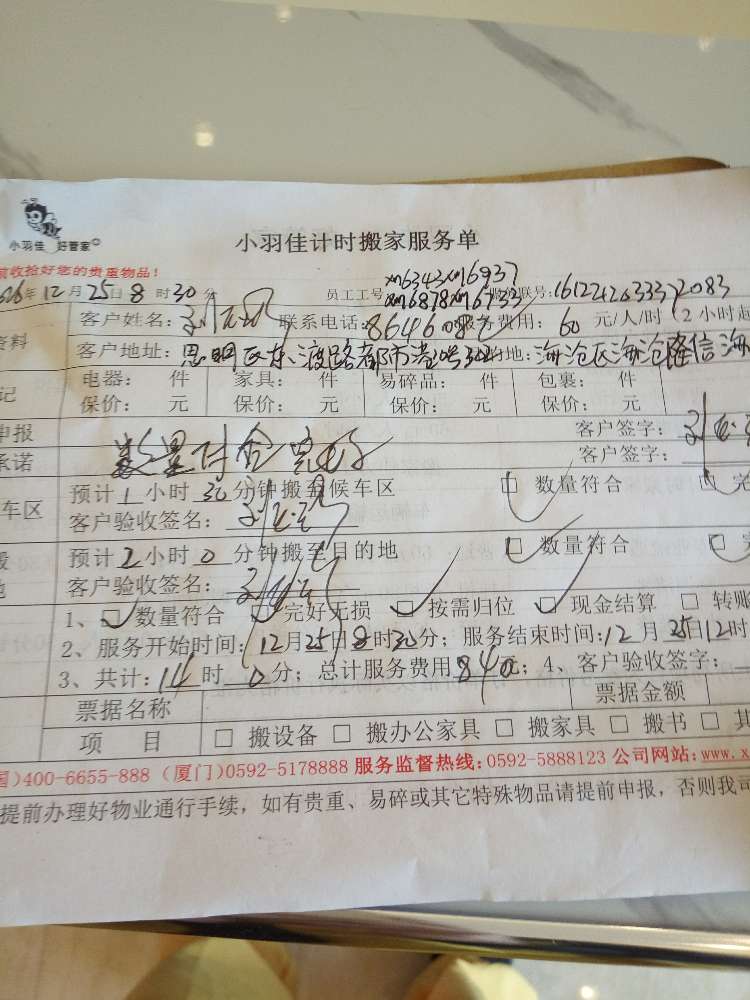 小羽佳 好管家
小羽佳计时搬家服务单
收拾好您的贵重物品！
年12月25日8时30分 员工工号 xm6343 xm6937
xm6878 联号：
资料 客户姓名： 联系电话：864608 费用：60元/人/时（2小时起
客户地址：思明区东渡路都市港 地：海沧区海沧隆信海
记 电器： 件 家具： 件 易碎品： 件 包裹： 件
保价： 元 保价： 元 保价： 元 保价： 元
申报 客户签字：
承诺 数量付合完好 客户签字：
车区 预计1小时30分钟搬至候车区 □ 数量符合 □ 完
客户验收签名：
预计2小时0分钟搬至目的地 □ 数量符合 □
地 客户验收签名：
1、□ 数量符合 □ 完好无损 □ 按需归位 □ 现金结算 □ 转账
2、服务开始时间：12月25日8时30分；服务结束时间：12月25日12时
3、共计：14时0分；总计服务费用840元；4、客户验收签字：
票据名称 票据金额
项 目 □ 搬设备 □ 搬办公家具 □ 搬家具 □ 搬书 □ 其
国)400-6655-888 (厦门)0592-5178888 服务监督热线：0592-5888123 公司网站：www.x
提前办理好物业通行手续，如有贵重、易碎或其它特殊物品请提前申报，否则我司